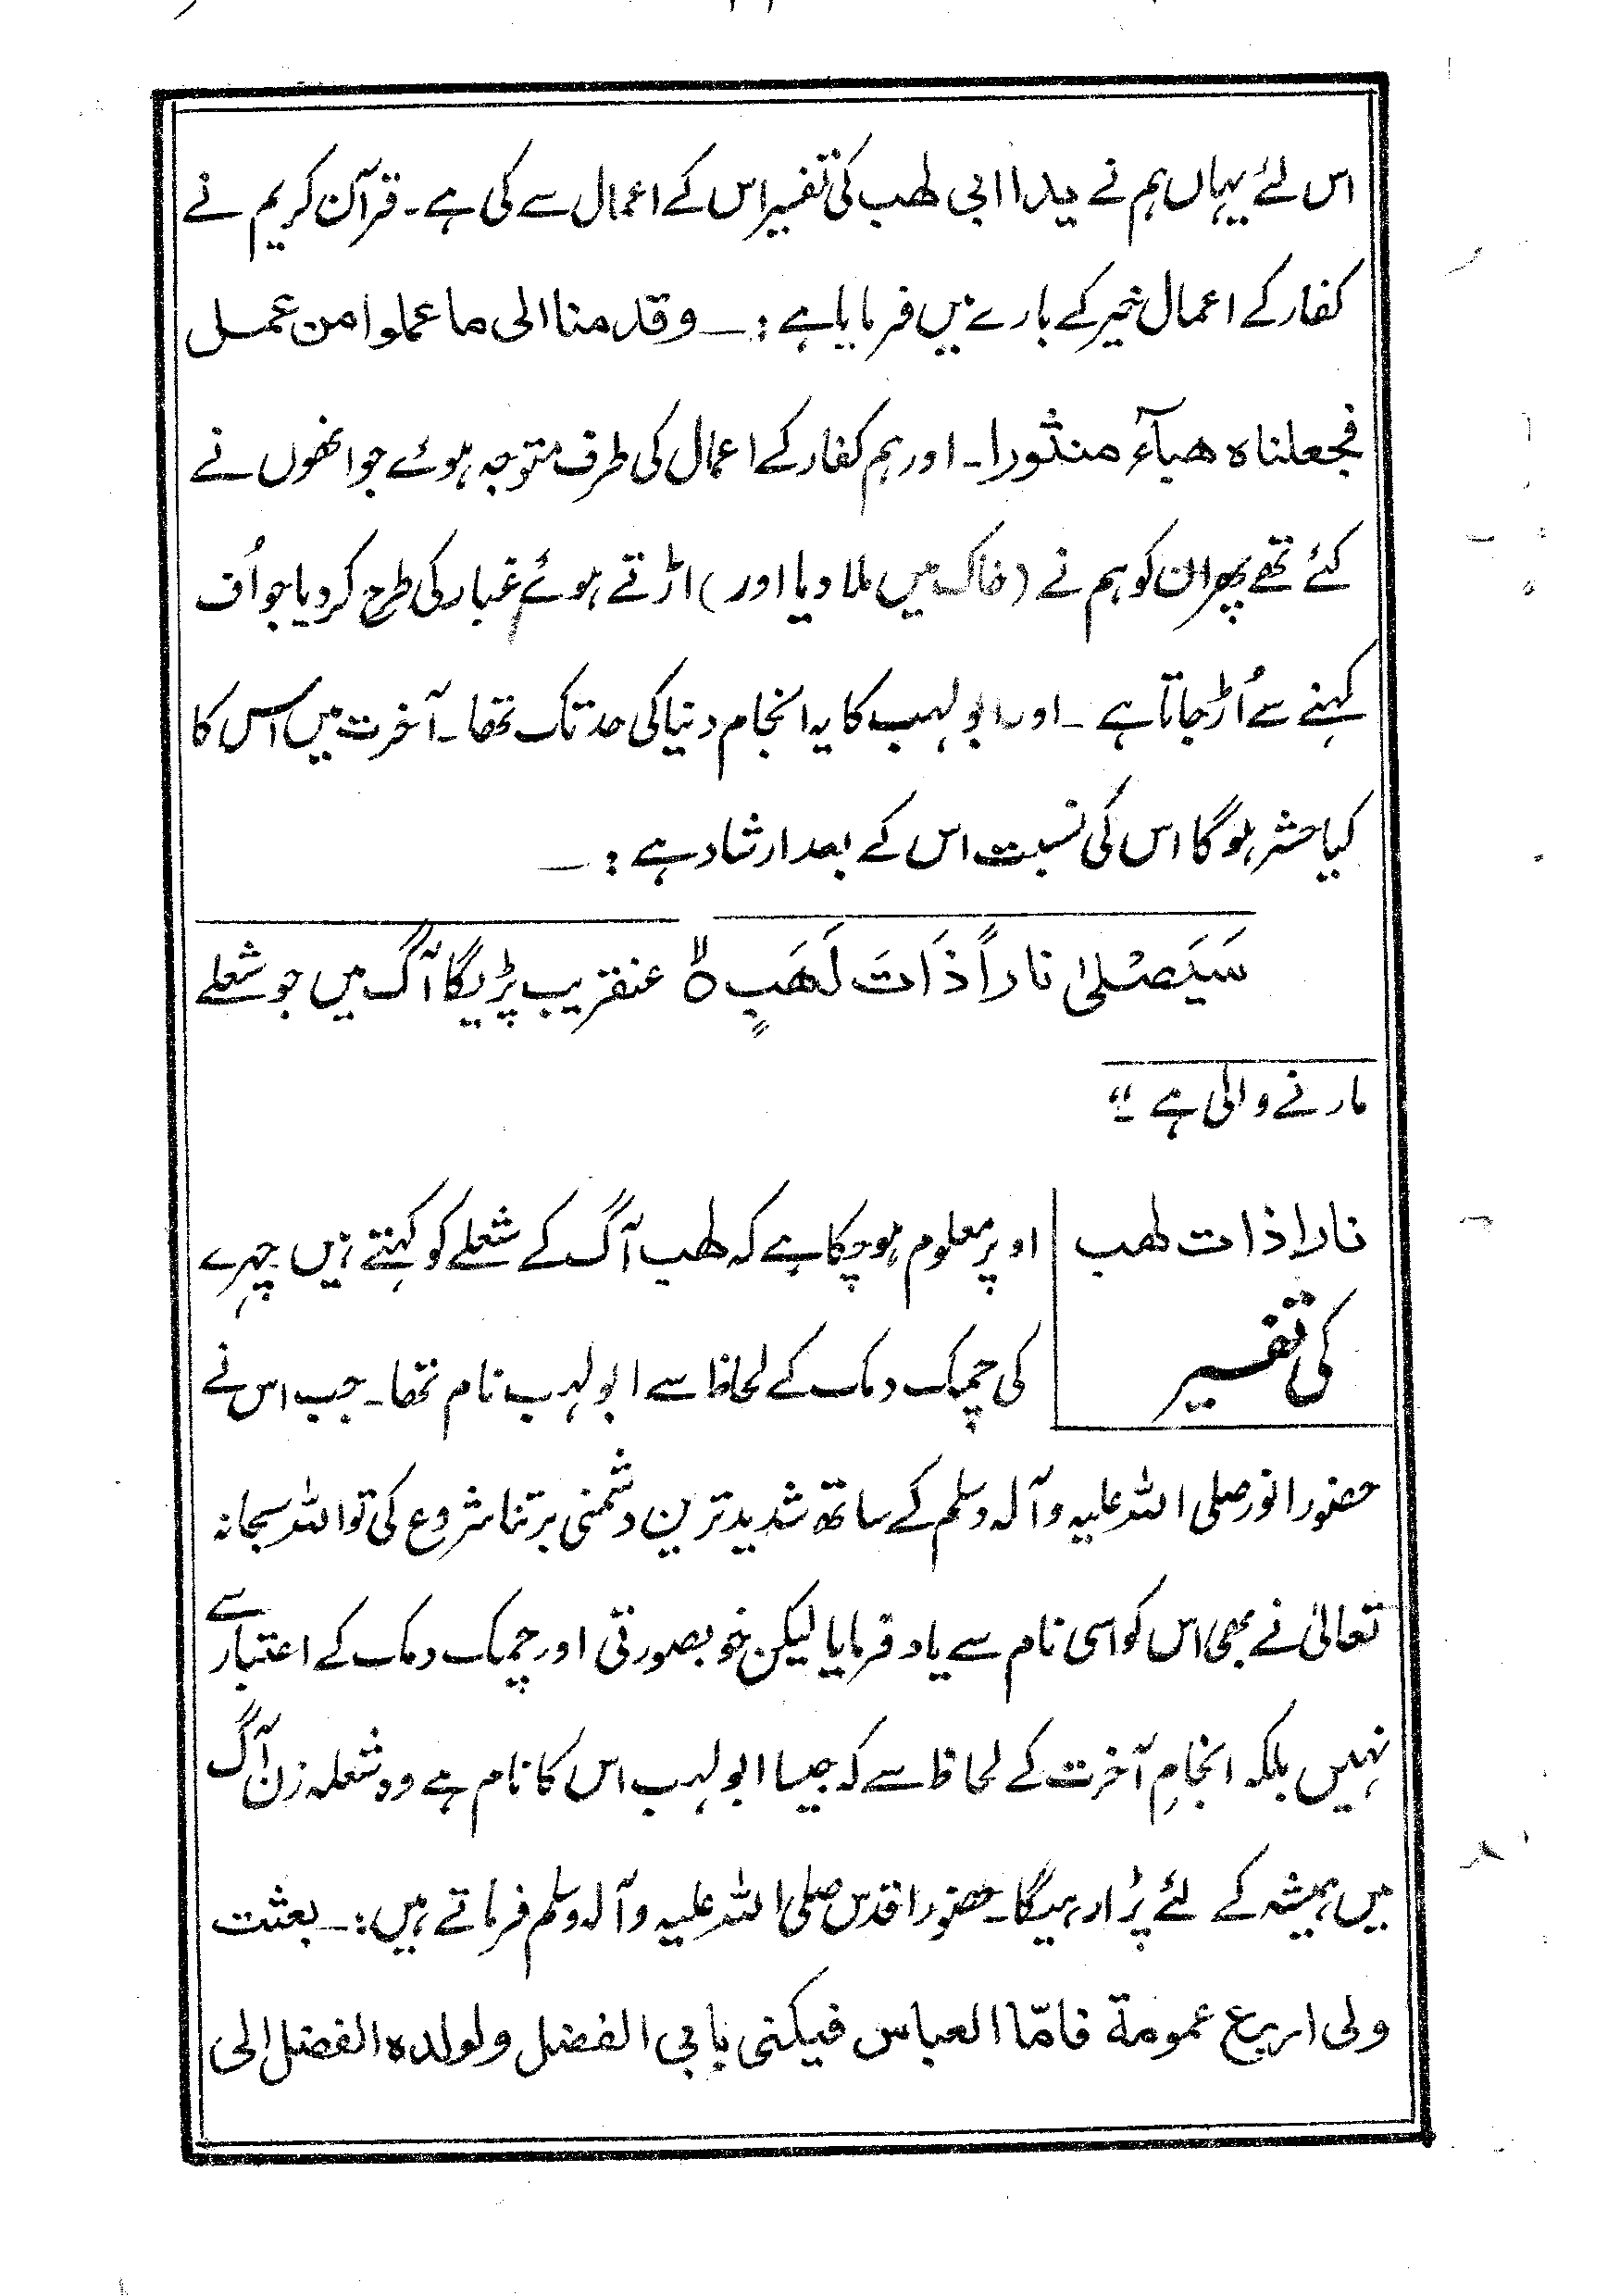 اس لئے یہاں ہم نے یدا ابی لھب کی تفسیر اس کے اعمال سے کی ہے۔ قرآن کریم نے
کفار کے اعمال خیر کے بارے میں فرمایا ہے :ـ وقدمنا الی ما عملوا من عمل
فجعلناہ ھبآء منثورا۔ اور ہم کفار کے اعمال کی طرف متوجہ ہوئے جو انھوں نے
کئے تھے پھر ان کو ہم نے (خاک میں ملا دیا اور) اڑتے ہوئے غبار کی طرح کر دیا جو اُف
کہنے سے اُڑ جاتا ہے ۔ اور ابو لہب کا یہ انجام دنیا کی حد تک تھا۔ آخرت میں اس کا
کیا حشر ہو گا اس کی نسبت اس کے بعد ارشاد ہے :ـ
سَیَصْلیٰ ناراً ذَاتَ لَھَبٍ ہ" عنقریب پڑیگا آگ میں جو شعلے
مارنے والی ہے "
نارا ذات لھب | اوپر معلوم ہو چکا ہے کہ لھب آگ کے شعلے کو کہتے ہیں چہرے
کی تفسیر | کی چمک دمک کے لحاظ سے ابو لہب نام تھا۔ جب اس نے
حضور انور صلی اللہ علیہ وآلہ وسلم کے ساتھ شدید ترین دشمنی برتنا شروع کی تو اللہ سبحانہ
تعالیٰ نے بھی اس کو اسی نام سے یاد فرمایا لیکن خوبصورتی اور چمک دمک کے اعتبار سے
نہیں بلکہ انجامِ آخرت کے لحاظ سے کہ جیسا ابو لہب اس کا نام ہے وہ شعلہ زن آگ
میں ہمیشہ کے لئے پڑا رہیگا۔ حضور اقدس صلی اللہ علیہ وآلہ وسلم فرماتے ہیں :ـ بعثت
ولی اربع عمومة فامّا العباس فیکنی بابی الفضل ولولدہ الفضل الی